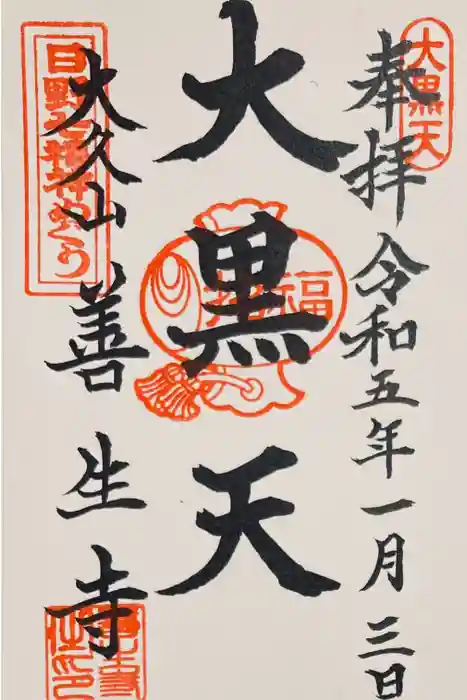 大黒天
奉拝 令和五年一月三日
大黒天
招福
日野七福神めぐり
大久山 善生寺